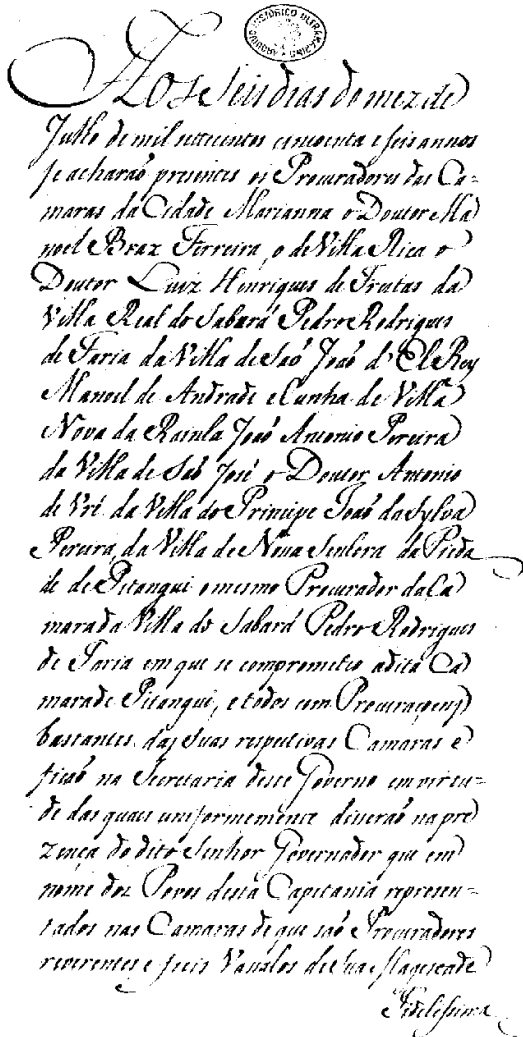 ARQUIVO HISTÓRICO ULTRAMARINO
Aos Seis dias do mez de
Julho de mil settecentos cincoenta e seis annos
se acharaõ prezentes os Procuradores das Ca=
maras da Cidade Marianna o Doutor Ma
noel Braz Ferreira, o de Villa Rica o
Doutor Luiz Henriques de Freitas da
Villa Real do Sabará Pedro Rodrigues
de Faria da Villa de Saõ Joaõ d' El Rey
Manoel de Andrade e Cunha de Villa
Nova da Rainha Joaõ Antonio Pereira
da Villa de Saõ José o Doutor Antonio
de da Villa do Principe Joaõ da Sylva
Pereira, da Villa de Nova Senhora da Pieda
de de Pitangui o mesmo Procurador da Ca
mara da Villa do Sabará Pedro Rodrigues
de Faria em que se comprometeo a dita Ca
mara de Pitangui, e todos com Procuraçoens
bastantes das suas respectivas Camaras e
ficaõ na Secretaria deste Governo em virtu=
de das quaes uniformemente disseraõ na pre
zença do dito Senhor Governador que em
nome dos Povos desta Capitania represen=
tados nas Camaras de que saõ Procuradores
reverentes e fieis Vassalos de Sua Magestade
Fidelissima